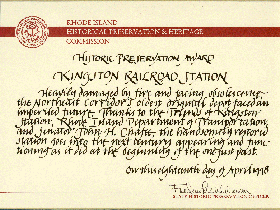 RHODE ISLAND
HISTORICAL PRESERVATION & HERITAGE
COMMISSION
HISTORIC PRESERVATION AWARD
KINGSTON RAILROAD STATION
Heavily damaged by fire and facing obsolescence,
the Northeast Corridor's oldest original depot faced an
imperiled future. Thanks to the Friends of Kingston
Station, Rhode Island Department of Transportation,
and Senator John H. Chafee, the handsomely restored
station goes into the next century appearing and func-
tioning as it did at the beginning of the one just past.
On this eighteenth day of April 1998
STATE HISTORIC PRESERVATION OFFICER